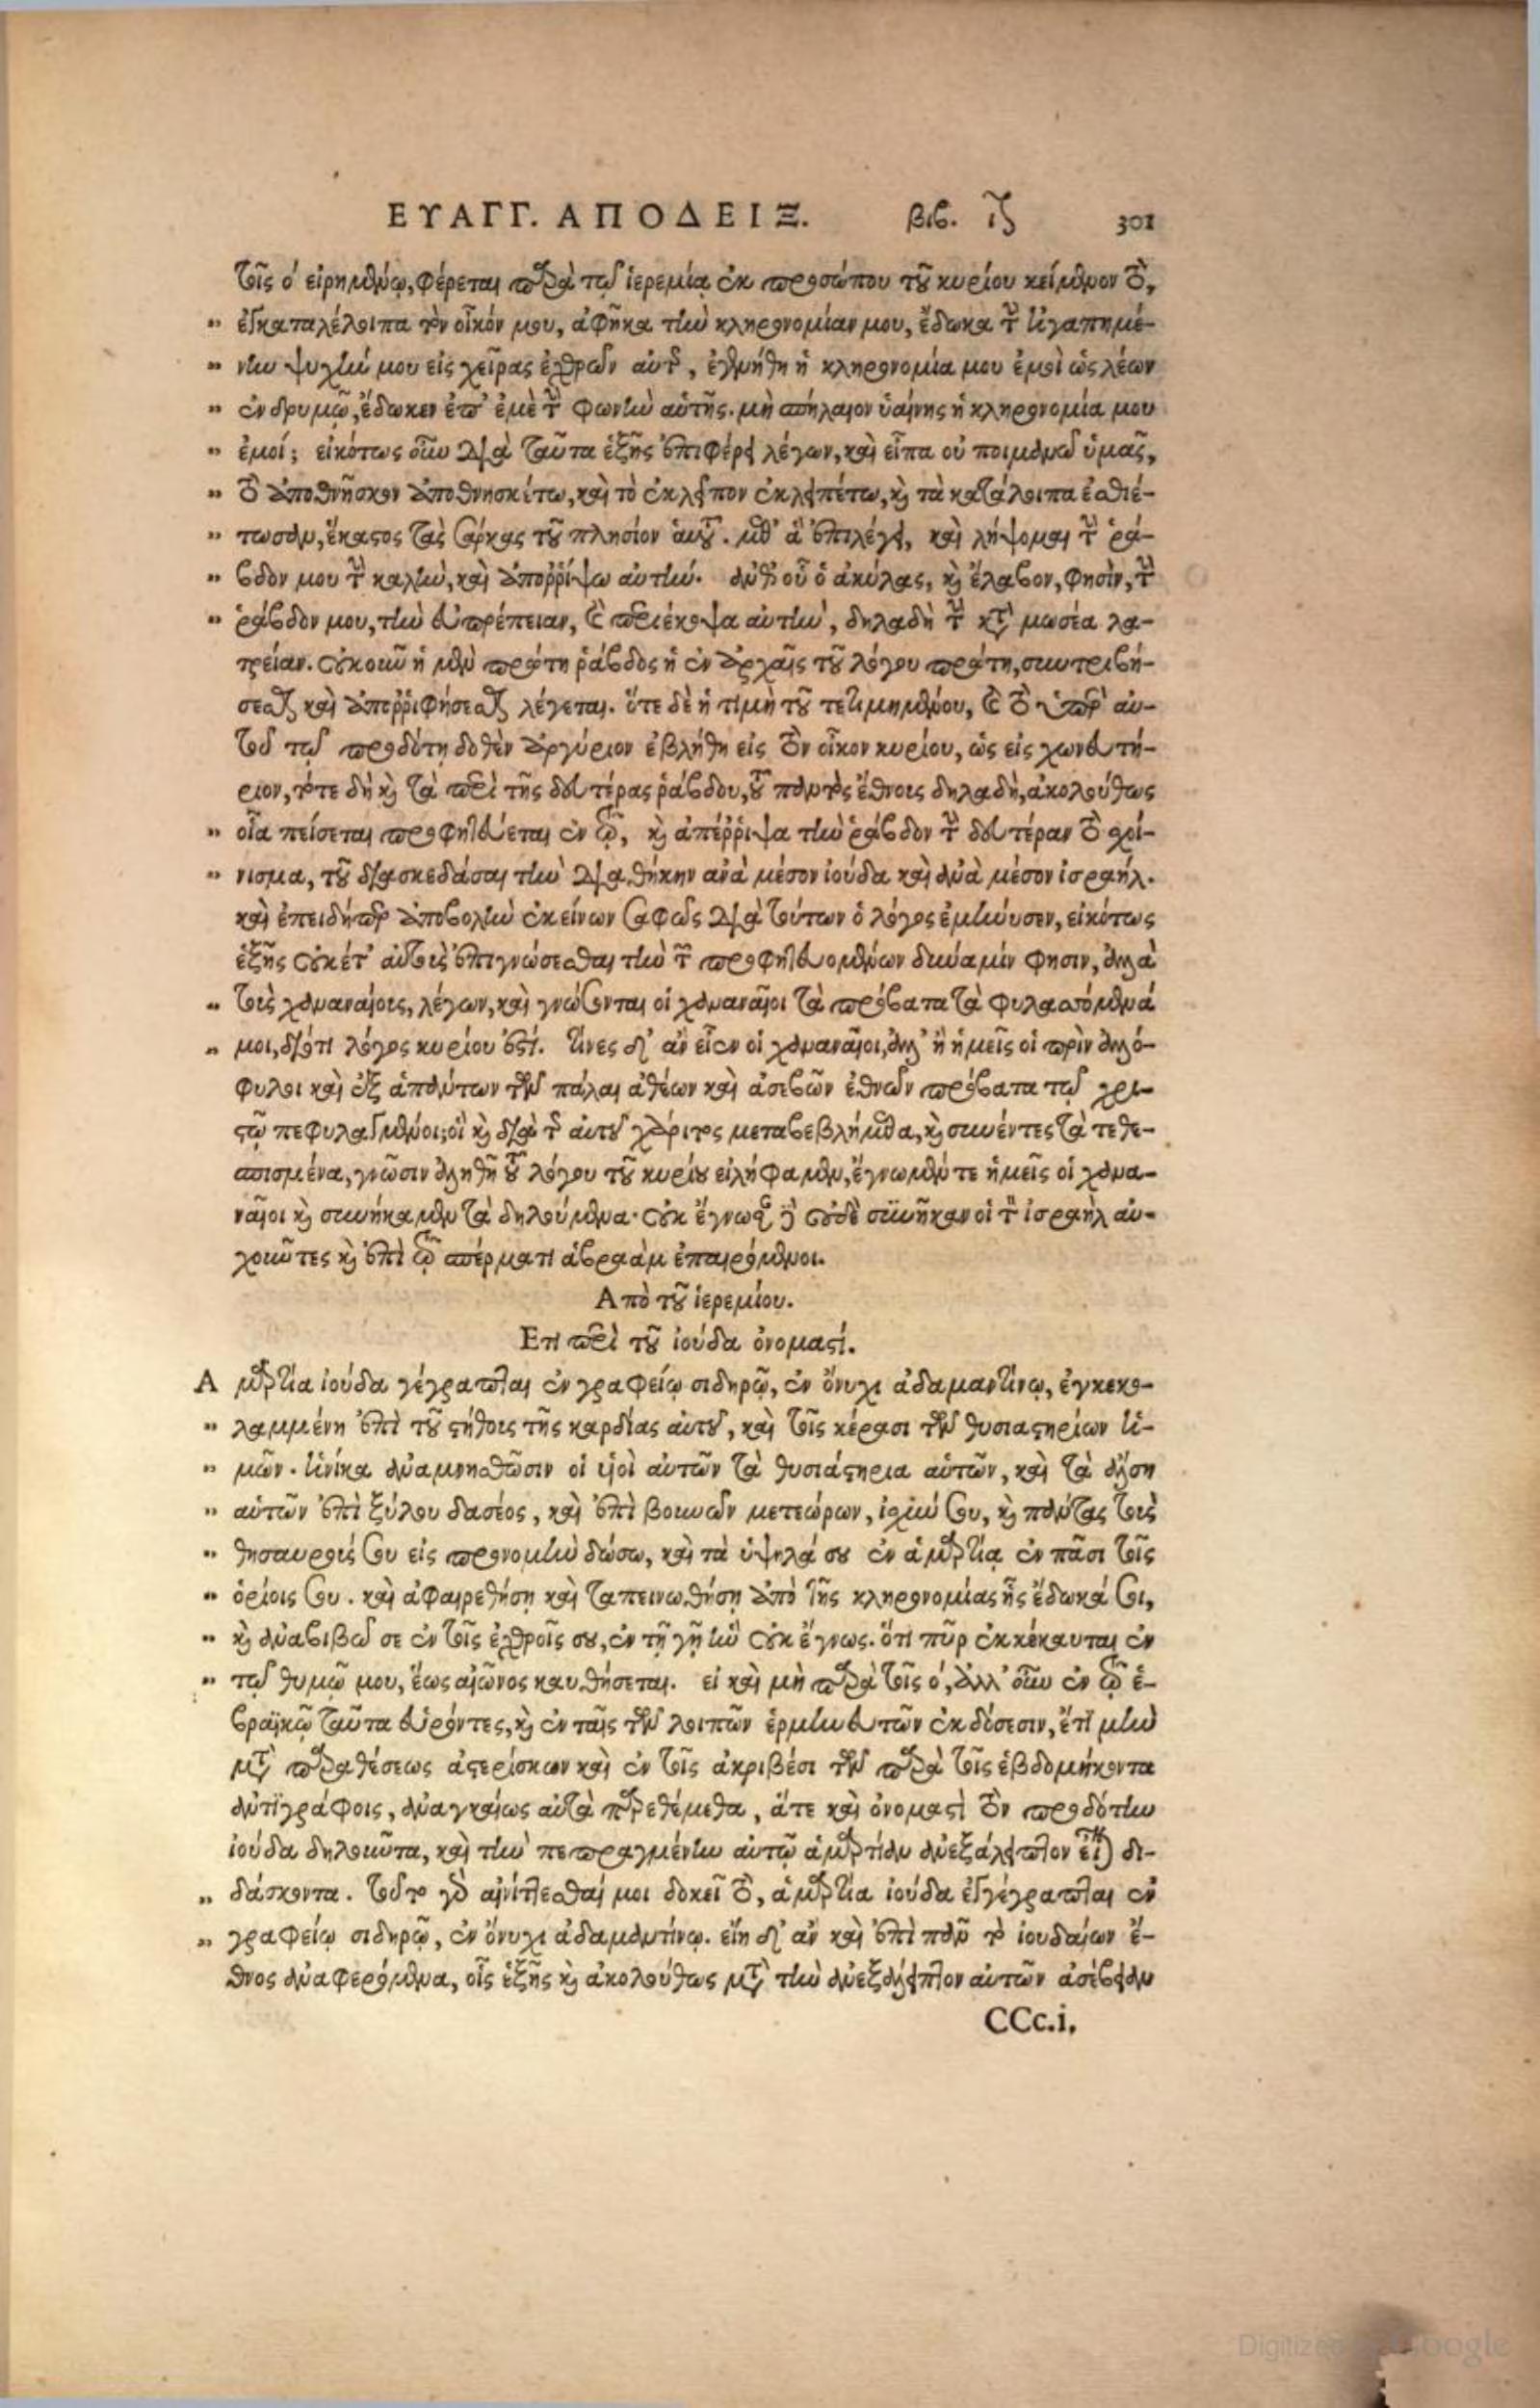 ΕΥΑΓΓ. ΑΠΟΔΕΙΞ. βιβ. ιζ 301
τοῖς ὁ εἰρημένῳ, φέρεται παρὰ τῷ ἱερεμίᾳ ἐκ προσώπου τοῦ κυρίου κείμενον τὸ,
" ἐγκαταλέλοιπα τὸν οἶκόν μου, ἀφῆκα τὴν κληρονομίαν μου, ἔδωκα τὴν ἠγαπημέ-
" νην ψυχήν μου εἰς χεῖρας ἐχθρῶν αὐτῆς, ἐγενήθη ἡ κληρονομία μου ἐμοὶ ὡς λέων
" ἐν δρυμῷ, ἔδωκεν ἐπ' ἐμὲ τὴν φωνὴν αὑτῆς. μὴ σπήλαιον ὑαίνης ἡ κληρονομία μου
" ἐμοί; εἰκότως οὖν διὰ ταῦτα ἑξῆς ἐπιφέρει λέγων, καὶ εἶπα οὐ ποιμανῶ ὑμᾶς,
" τὸ ἀποθνῆσκον ἀποθνησκέτω, καὶ τὸ ἐκλεῖπον ἐκλειπέτω, καὶ τὰ κατάλοιπα ἐσθιέ-
" τωσαν, ἕκαστος τὰς σάρκας τοῦ πλησίον αὑτοῦ. μεθ' ἃ ἐπιλέγει, καὶ λήψομαι τὴν ῥά-
" βδον μου τὴν καλὴν, καὶ ἀποῤῥίψω αὐτήν. ἀνθ' οὗ ὁ ἀκύλας, καὶ ἔλαβον, φησὶν, τὴν
" ῥάβδον μου, τὴν εὐπρέπειαν, καὶ περιέκοψα αὐτὴν, δηλαδὴ τὴν κατὰ μωσέα λα-
τρείαν. οὐκοῦν ἡ μὲν πρώτη ῥάβδος ἡ ἐν ἀρχαῖς τοῦ λόγου πρώτη, συντριβή-
σεσθαι καὶ ἀποῤῥιφήσεσθαι λέγεται. ὅτε δὲ ἡ τιμὴ τοῦ τετιμημένου, καὶ τὸ ὑπὲρ αὐ-
τοῦ τῷ προδότῃ δοθὲν ἀργύριον ἐβλήθη εἰς τὸν οἶκον κυρίου, ὡς εἰς χωνευτή-
ριον, τότε δὴ καὶ τὰ περὶ τῆς δευτέρας ῥάβδου, τοῦ παντὸς ἔθνους δηλαδὴ, ἀκολούθως
" οἷα πείσεται προφητεύεται ἐν τῷ, καὶ ἀπέῤῥιψα τὴν ῥάβδον τὴν δευτέραν τὸ χοί-
" νισμα, τοῦ διασκεδάσαι τὴν διαθήκην ἀνὰ μέσον ἰούδα καὶ ἀνὰ μέσον ἰσραήλ.
καὶ ἐπειδήπερ ἀποβολὴν ἐκείνων σαφῶς διὰ τούτων ὁ λόγος ἐμήνυσεν, εἰκότως
ἑξῆς οὐκέτ' αὐτοὺς ἐπιγνώσεσθαι τὴν τῶν προφητευομένων δύναμίν φησιν, ἀλλὰ
" τοὺς χαναναίους, λέγων, καὶ γνώσονται οἱ χαναναῖοι τὰ πρόβατα τὰ φυλασσόμενά
" μοι, διότι λόγος κυρίου ἐστί. τίνες δ' ἂν εἶεν οἱ χαναναῖοι, ἀλλ' ἢ ἡμεῖς οἱ πρὶν ἀλλό-
φυλοι καὶ ἐξ ἁπάντων τῶν πάλαι ἀθέων καὶ ἀσεβῶν ἐθνῶν πρόβατα τῷ χρι-
στῷ πεφυλαγμένοι; οἳ καὶ διὰ τῆς αὐτοῦ χάριτος μεταβεβλήμεθα, καὶ συνέντες τὰ τεθε-
σπισμένα, γνῶσιν ἀληθῆ τοῦ λόγου τοῦ κυρίου εἰλήφαμεν, ἔγνωμέν τε ἡμεῖς οἱ χανα-
ναῖοι καὶ συνήκαμεν τὰ δηλούμενα· οὐκ ἔγνωσαν δὲ οὐδὲ συνῆκαν οἱ τὸν ἰσραὴλ αὐ-
χοῦντες καὶ ἐπὶ τῷ σπέρματι ἁβραὰμ ἐπαιρόμενοι.
Απὸ τοῦ ἱερεμίου.
Ετι περὶ τοῦ ἰούδα ὀνομαστί.
Α μαρτία ἰούδα γέγραπται ἐν γραφείῳ σιδηρῷ, ἐν ὄνυχι ἀδαμαντίνῳ, ἐγκεκο-
" λαμμένη ἐπὶ τοῦ στήθους τῆς καρδίας αὐτοῦ, καὶ τοῖς κέρασι τῶν θυσιαστηρίων ὑ-
" μῶν. ἡνίκα ἀναμνησθῶσιν οἱ υἱοὶ αὐτῶν τὰ θυσιάστηρια αὑτῶν, καὶ τὰ ἄλση
" αὑτῶν ἐπὶ ξύλου δασέος, καὶ ἐπὶ βουνῶν μετεώρων, ἰσχύν σου, καὶ πάντας τοὺς
" θησαυρούς σου εἰς προνομὴν δώσω, καὶ τὰ ὑψηλά σου ἐν ἁμαρτίᾳ ἐν πᾶσι τοῖς
" ὁρίοις σου. καὶ ἀφαιρεθήσῃ καὶ ταπεινωθήσῃ ἀπὸ τῆς κληρονομίας ἧς ἔδωκά σοι,
" καὶ ἀναβιβῶ σε ἐν τοῖς ἐχθροῖς σου, ἐν τῇ γῇ ᾗ οὐκ ἔγνως. ὅτι πῦρ ἐκκέκαυται ἐν
" τῷ θυμῷ μου, ἕως αἰῶνος καυθήσεται. εἰ καὶ μὴ παρὰ τοῖς ὁ, ἀλλ' οὖν ἐν τῷ ἑ-
βραϊκῷ ταῦτα εὑρόντες, καὶ ἐν ταῖς τῶν λοιπῶν ἑρμηνευτῶν ἐκδόσεσιν, ἔτι μὴν
μετὰ παραθέσεως ἀστερίσκων καὶ ἐν τοῖς ἀκριβέσι τῶν παρὰ τοῖς ἑβδομήκοντα
ἀντιγράφοις, ἀναγκαίως αὐτὰ παρεθέμεθα, ἅτε καὶ ὀνομαστὶ τὸν προδότην
ἰούδα δηλοῦντα, καὶ τὴν πεπραγμένην αὐτῷ ἁμαρτίαν ἀνεξάλειπτον εἶναι δι-
" δάσκοντα. τοῦτο γὰρ αἰνίττεσθαί μοι δοκεῖ τὸ, ἁμαρτία ἰούδα ἐγγέγραπται ἐν
" γραφείῳ σιδηρῷ, ἐν ὄνυχι ἀδαμαντίνῳ. εἴη δ' ἂν καὶ ἐπὶ πᾶν τὸ ἰουδαίων ἔ-
θνος ἀναφερόμενα, οἷς ἑξῆς καὶ ἀκολούθως μετὰ τὴν ἀνεξάλειπτον αὐτῶν ἀσέβειαν
CCc.i.
Digitized by Google